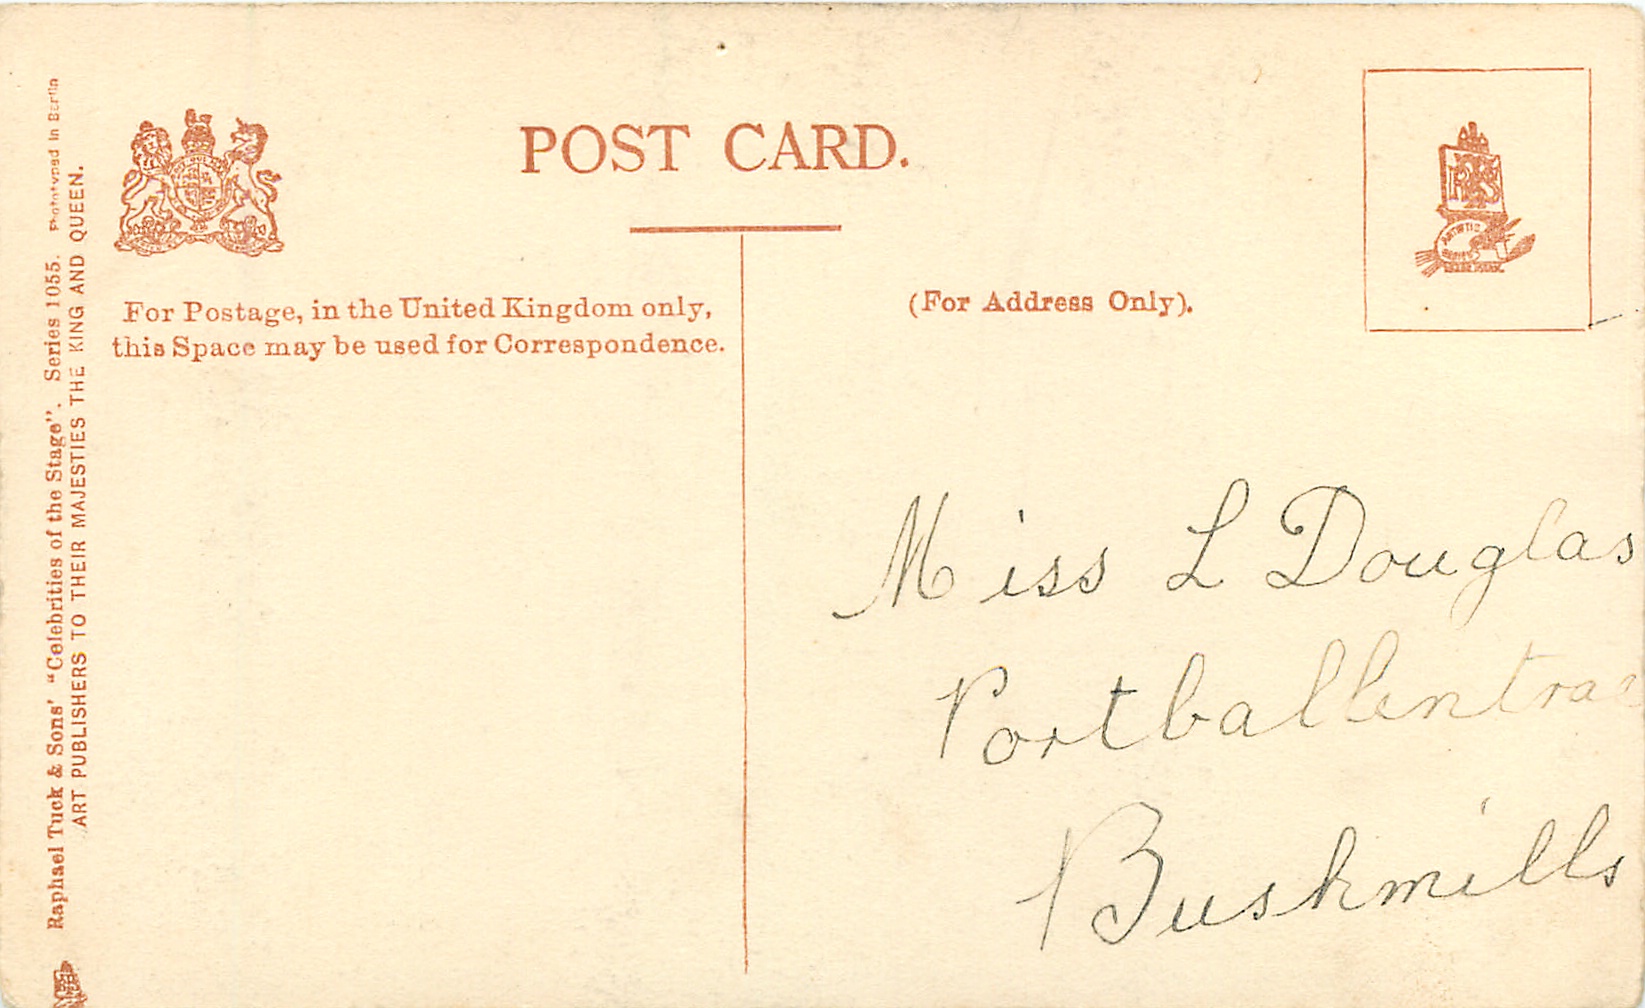 POST CARD.
For Postage, in the United Kingdom only,
this Space may be used for Correspondence.
(For Address Only).
Miss L Douglas
Portballentrae
Bushmills
Raphael Tuck & Sons' "Celebrities of the Stage". Series 1055. Phototyped in Berlin
ART PUBLISHERS TO THEIR MAJESTIES THE KING AND QUEEN.